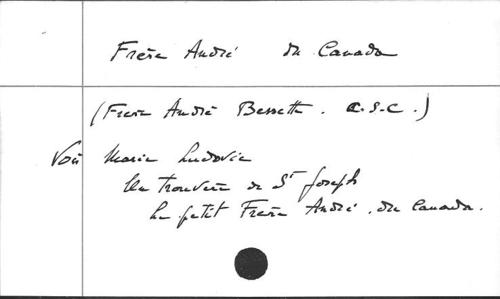 Frère André du Canada
(Frère André Bessette. C.S.C.)
Voir Marie Ludovic
Un trouvère de St Joseph
Le petit Frère André du Canada.